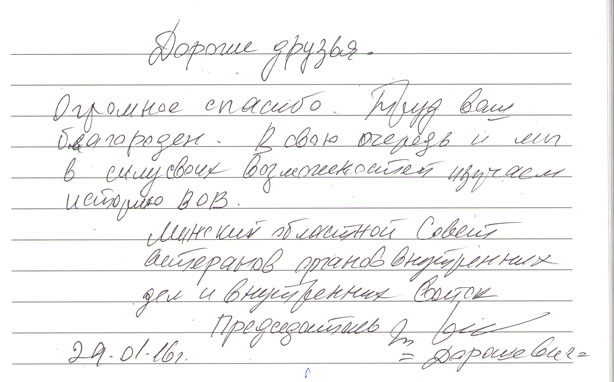 Дорогие друзья.
Огромное спасибо. Труд ваш
благороден. В свою очередь и мы
в силу своих возможностей изучаем
историю ВОВ.
Минский областной Совет
ветеранов органов внутренних
дел и внутренних войск
Председатель
29.01.16г. =Дорошевич=